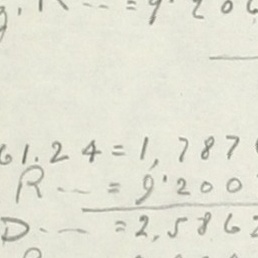 g. R ... = 9.206
61.24 = 1,787
R ... = 9.200
D ... = 2.5862